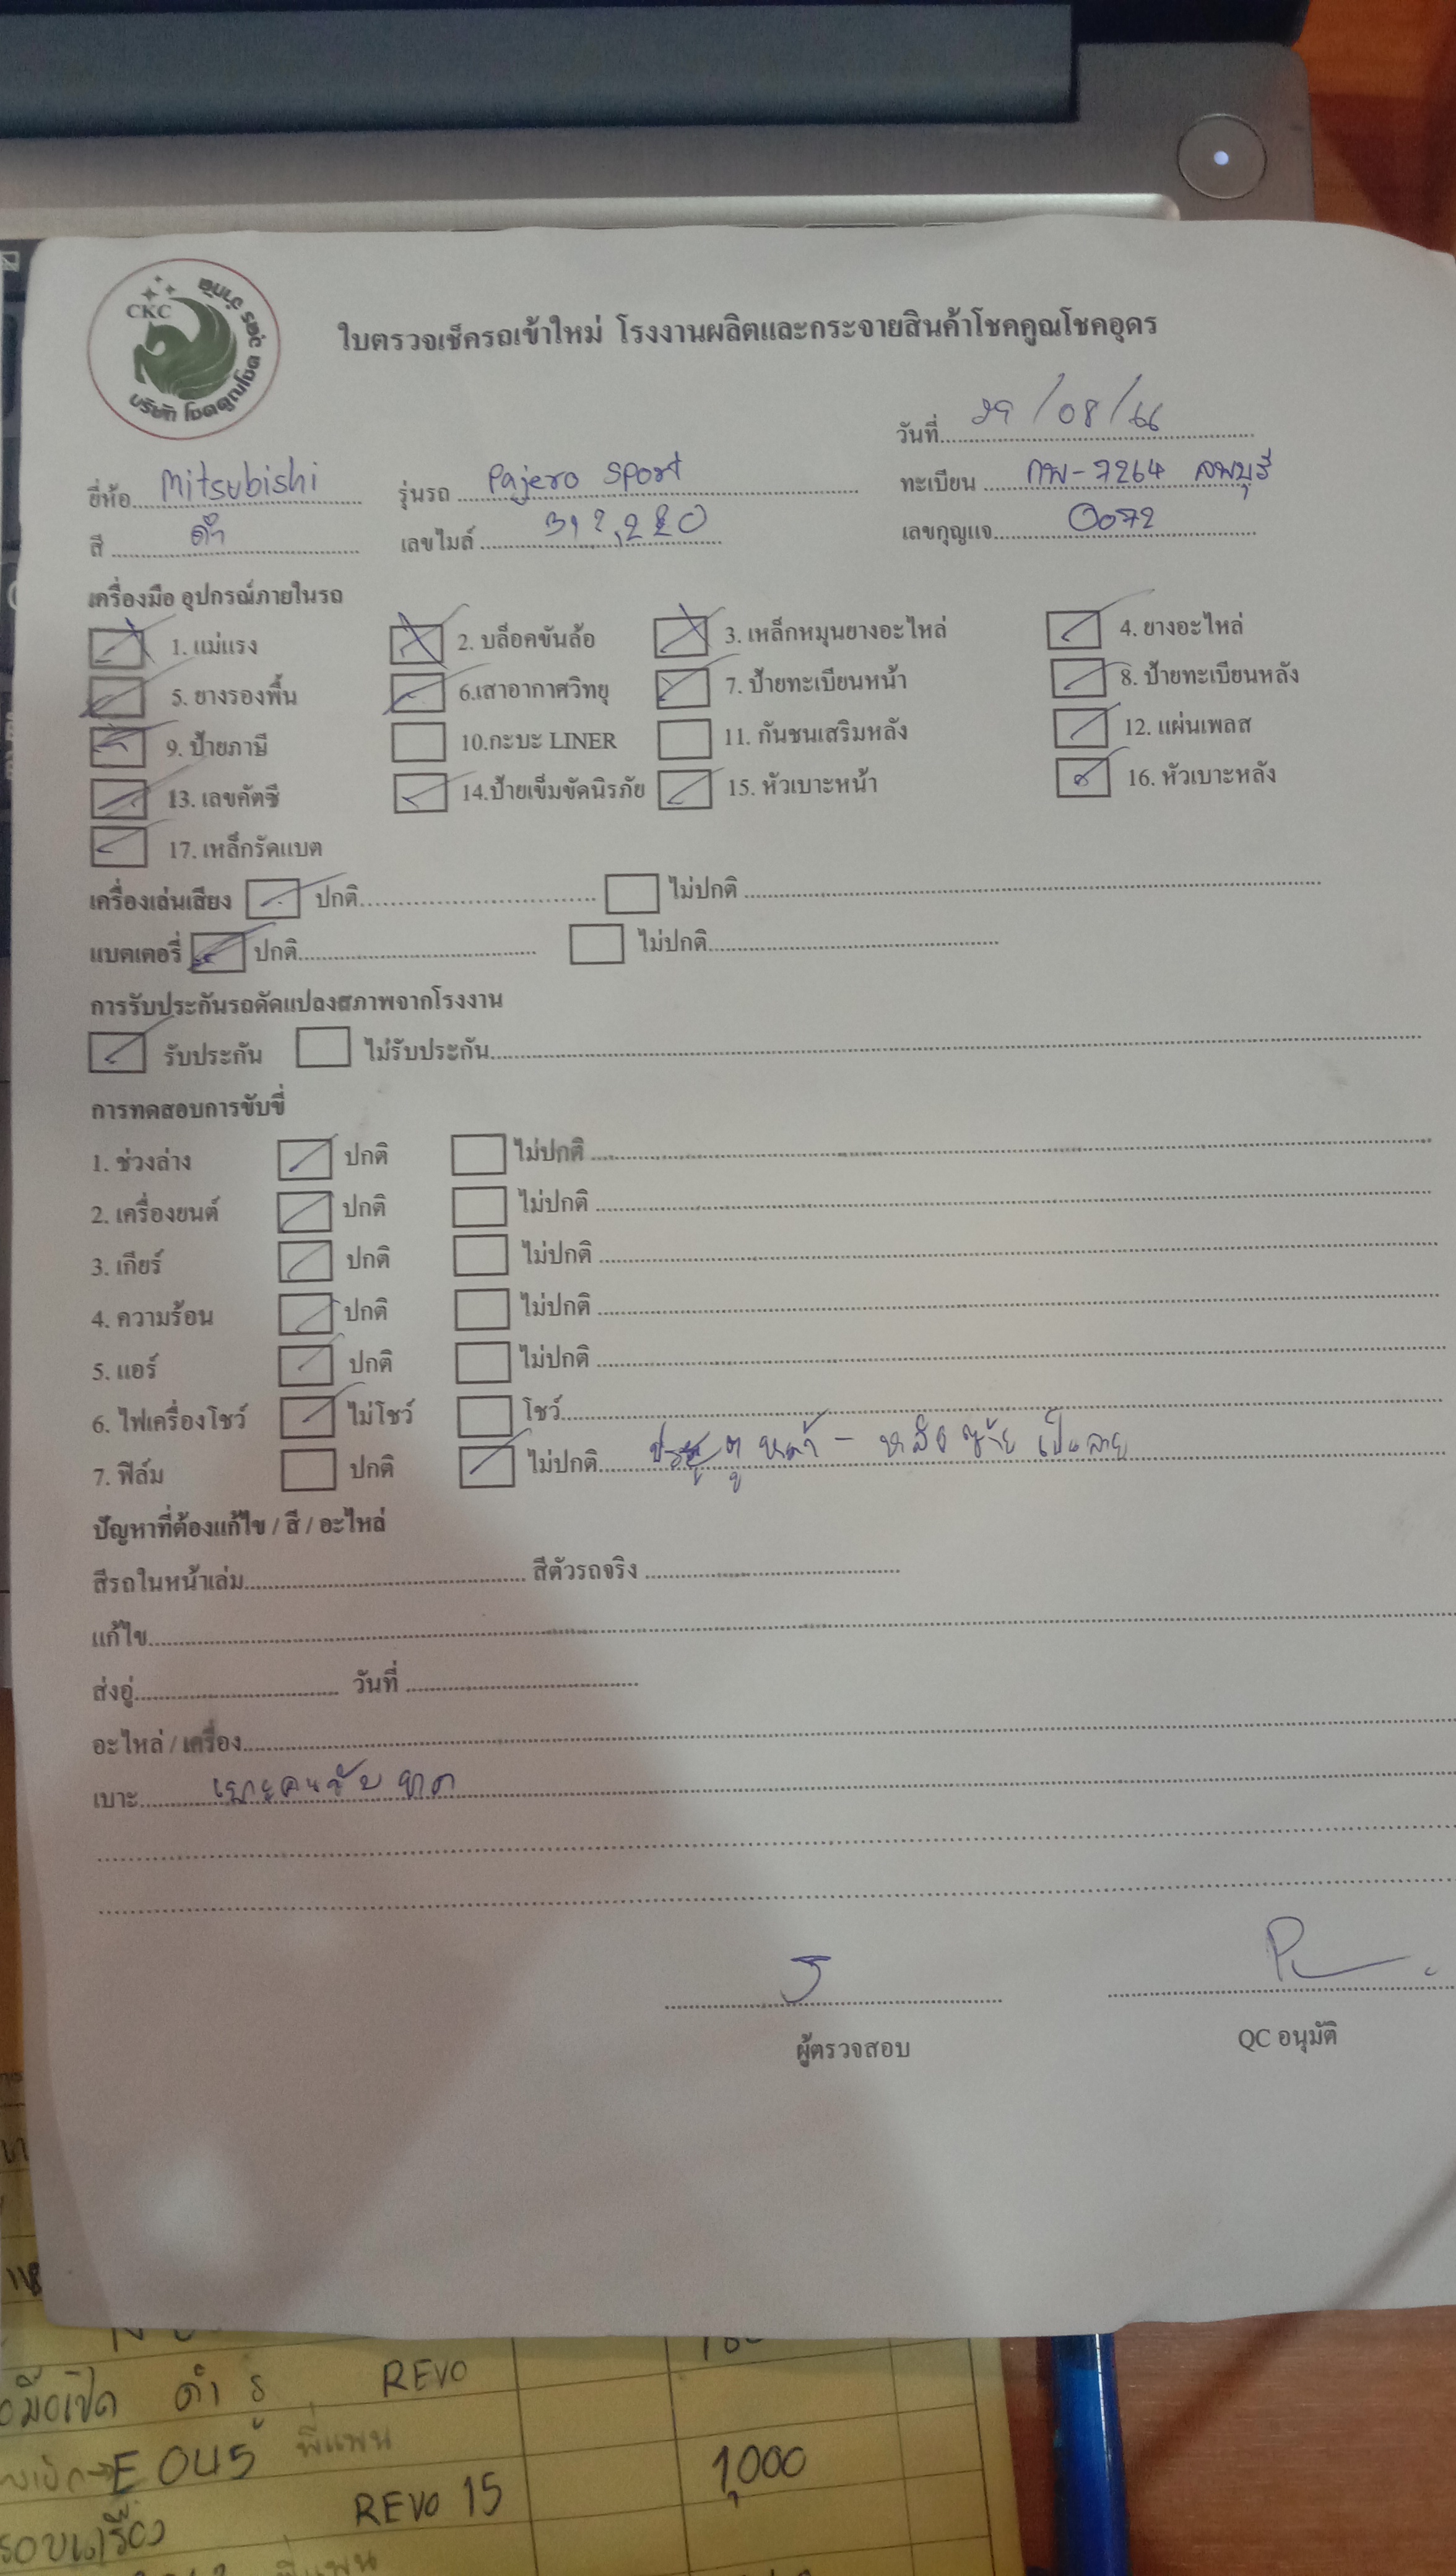 CKC
บริษัท โชคคูณโชค คาร์ส จำกัด
ใบตรวจเช็ครถเข้าใหม่ โรงงานผลิตและกระจายสินค้าโชคคูณโชคอุดร
วันที่ 29/08/66
ยี่ห้อ Mitsubishi รุ่นรถ Pajero Sport ทะเบียน กพ-7264 ลพบุรี
สี ดำ เลขไมล์ 312,220 เลขกุญแจ 0072
เครื่องมือ อุปกรณ์ภายในรถ
1. แม่แรง 2. บล็อคขันล้อ 3. เหล็กหมุนยางอะไหล่ 4. ยางอะไหล่
5. ยางรองพื้น 6.เสาอากาศวิทยุ 7. ป้ายทะเบียนหน้า 8. ป้ายทะเบียนหลัง
9. ป้ายภาษี 10.กะบะ LINER 11. กันชนเสริมหลัง 12. แผ่นเพลส
13. เลขคัตซี 14.ป้ายเข็มขัดนิรภัย 15. หัวเบาะหน้า 16. หัวเบาะหลัง
17. เหล็กรัดแบต
เครื่องเล่นเสียง ปกติ ไม่ปกติ
แบตเตอรี่ ปกติ ไม่ปกติ
การรับประกันรถดัดแปลงสภาพจากโรงงาน
รับประกัน ไม่รับประกัน
การทดสอบการขับขี่
1. ช่วงล่าง ปกติ ไม่ปกติ
2. เครื่องยนต์ ปกติ ไม่ปกติ
3. เกียร์ ปกติ ไม่ปกติ
4. ความร้อน ปกติ ไม่ปกติ
5. แอร์ ปกติ ไม่ปกติ
6. ไฟเครื่องโชว์ ไม่โชว์ โชว์
7. ฟิล์ม ปกติ ไม่ปกติ ประตู หน้า - หลัง ซ้าย เป็นลาย
ปัญหาที่ต้องแก้ไข / สี / อะไหล่
สีรถในหน้าเล่ม สีตัวรถจริง
แก้ไข
ส่งอู่ วันที่
อะไหล่ / เครื่อง
เบาะ เบาะคนขับ ขาด
ผู้ตรวจสอบ QC อนุมัติ
มือเปิด ดำ REVO
E 045 พี่แพน 1,000
REVO 15
พี่แพน